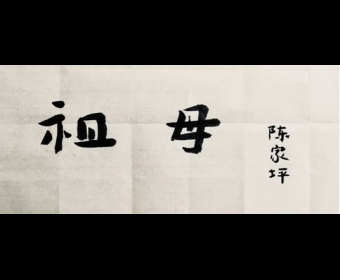 祖母
陈家坪